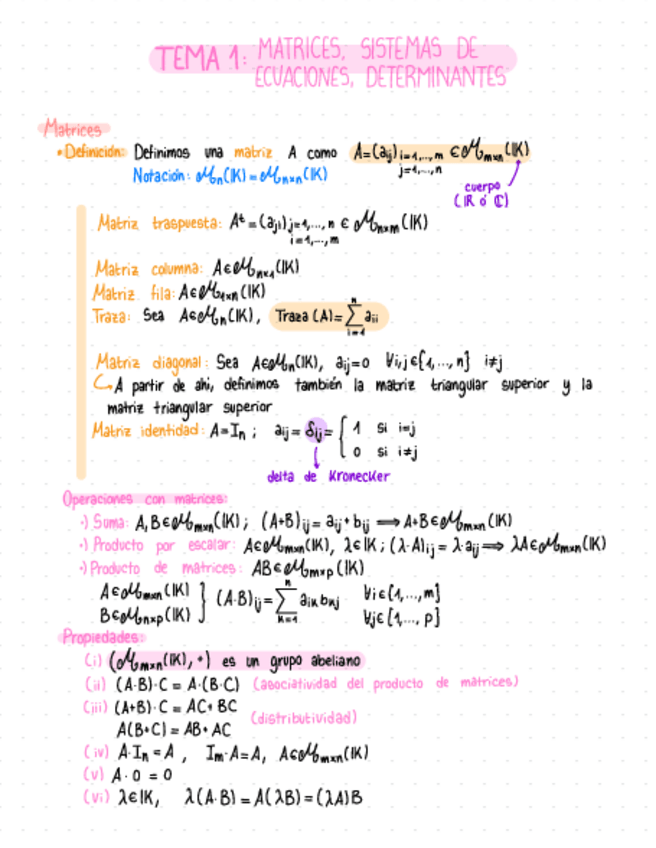 TEMA 1: MATRICES, SISTEMAS DE
ECUACIONES, DETERMINANTES
Matrices
• Definición: Definimos una matriz A como A=(aij) i=1,...,m ∈ ℳm×n(IK)
j=1,...,n
Notación: ℳn(IK)=ℳn×n(IK)
cuerpo
(IR ó ℂ)
Matriz traspuesta: Aᵗ=(aji) j=1,...,n ∈ ℳn×m(IK)
i=1,...,m
Matriz columna: A∈ℳn×1(IK)
Matriz fila: A∈ℳ1×n(IK)
Traza: Sea A∈ℳn(IK), Traza (A)=∑ⁿᵢ₌₁ aii
Matriz diagonal: Sea A∈ℳn(IK), aij=0 ∀i,j∈{1,...,n} i≠j
↳ A partir de ahi, definimos también la matriz triangular superior y la
matriz triangular superior
Matriz identidad: A=In ; aij= δij= { 1 si i=j
0 si i≠j
delta de Kronecker
Operaciones con matrices:
·) Suma: A,B∈ℳm×n(IK); (A+B)ij= aij+bij ⟹ A+B∈ℳm×n(IK)
·) Producto por escalar: A∈ℳm×n(IK), λ∈IK; (λ·A)ij= λ·aij ⟹ λA∈ℳm×n(IK)
·) Producto de matrices: AB∈ℳm×p(IK)
A∈ℳm×n(IK)
B∈ℳn×p(IK) } (A·B)ij=∑ⁿₖ₌₁ aik bkj ∀i∈{1,...,m}
∀j∈{1,...,p}
Propiedades:
(i) (ℳm×n(IK), +) es un grupo abeliano
(ii) (A·B)·C = A·(B·C) (asociatividad del producto de matrices)
(iii) (A+B)·C = AC+BC
A(B+C)= AB+AC (distributividad)
(iv) A·In = A , Im·A=A, A∈ℳm×n(IK)
(v) A·0 = 0
(vi) λ∈IK, λ(A·B)=A(λB)=(λA)B